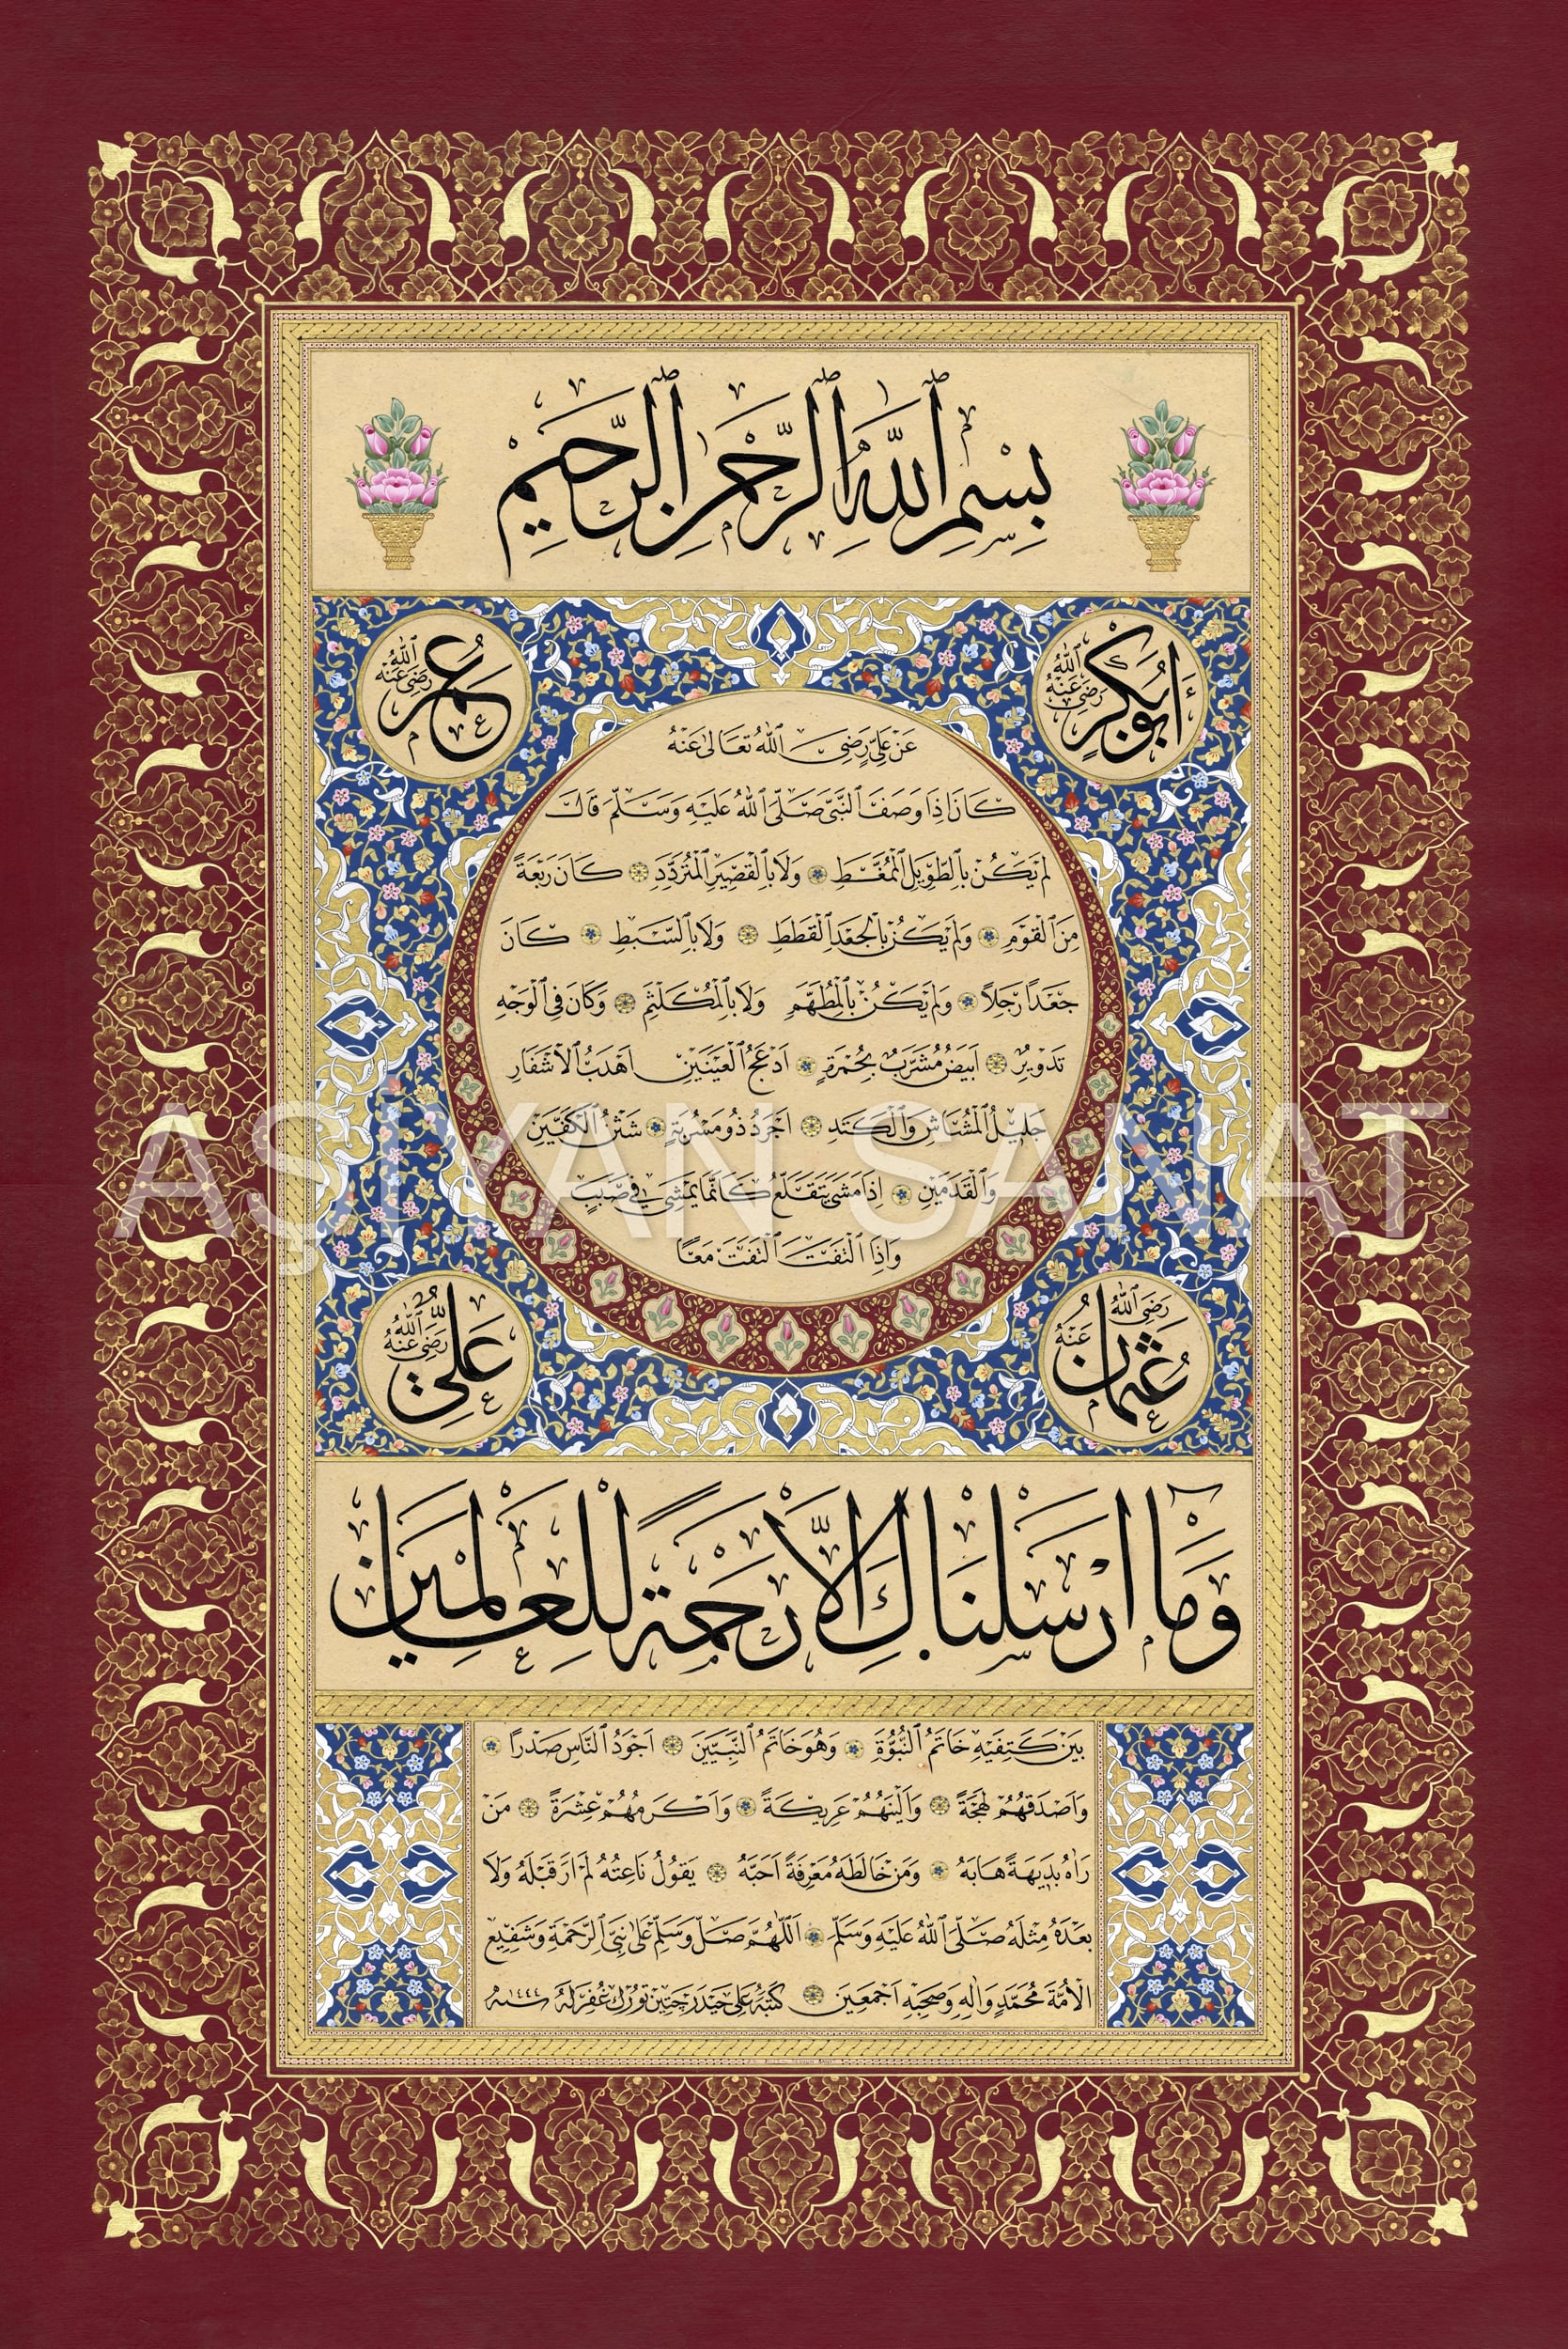 بِسْمِ ٱللَّهِ ٱلرَّحْمٰنِ ٱلرَّحِيمِ
أَبُو بَكْرٍ رَضِيَ ٱللَّهُ عَنْهُ
عُمَرُ رَضِيَ ٱللَّهُ عَنْهُ
عَنْ عَلِيٍّ رَضِيَ ٱللَّهُ تَعَالَىٰ عَنْهُ
كَانَ اِذَا وَصَفَ ٱلنَّبِيَّ صَلَّى ٱللَّهُ عَلَيْهِ وَسَلَّمَ قَالَ
لَمْ يَكُنْ بِالطَّوِيلِ ٱلْمُمَّغِطِ وَلَا بِالْقَصِيرِ ٱلْمُتَرَدِّدِ كَانَ رَبْعَةً
مِنَ ٱلْقَوْمِ وَلَمْ يَكُنْ بِالْجَعْدِ ٱلْقَطَطِ وَلَا بِالسَّبِطِ كَانَ
جَعْدًا رَجِلًا وَلَمْ يَكُنْ بِالْمُطَهَّمِ وَلَا بِالْمُكَلْثَمِ وَكَانَ فِي ٱلْوَجْهِ
تَدْوِيرٌ اَبْيَضُ مُشْرَبٌ بِحُمْرَةٍ اَدْعَجُ ٱلْعَيْنَيْنِ اَهْدَبُ ٱلْاَشْفَارِ
جَلِيلُ ٱلْمُشَاشِ وَٱلْكَتَدِ اَجْرَدُ ذُو مَسْرُبَةٍ شَثْنُ ٱلْكَفَّيْنِ
وَٱلْقَدَمَيْنِ اِذَا مَشَى يَتَقَلَّعُ كَاَنَّمَا يَمْشِي فِي صَبَبٍ
وَاِذَا ٱلْتَفَتَ ٱلْتَفَتَ مَعًا
عُثْمَانُ رَضِيَ ٱللَّهُ عَنْهُ
عَلِيٌّ رَضِيَ ٱللَّهُ عَنْهُ
وَمَا اَرْسَلْنَاكَ اِلَّا رَحْمَةً لِلْعَالَمِينَ
بَيْنَ كَتِفَيْهِ خَاتَمُ ٱلنُّبُوَّةِ وَهُوَ خَاتَمُ ٱلنَّبِيِّينَ اَجْوَدُ ٱلنَّاسِ صَدْرًا
وَاَصْدَقُهُمْ لَهْجَةً وَاَلْيَنُهُمْ عَرِيكَةً وَاَكْرَمُهُمْ عِشْرَةً مَنْ
رَاٰهُ بَدِيهَةً هَابَهُ وَمَنْ خَالَطَهُ مَعْرِفَةً اَحَبَّهُ يَقُولُ نَاعِتُهُ لَمْ اَرَ قَبْلَهُ وَلَا
بَعْدَهُ مِثْلَهُ صَلَّى ٱللَّهُ عَلَيْهِ وَسَلَّمَ اَللّٰهُمَّ صَلِّ وَسَلِّمْ عَلَىٰ نَبِيِّ ٱلرَّحْمَةِ وَشَفِيعِ
ٱلْاُمَّةِ مُحَمَّدٍ وَاٰلِهِ وَصَحْبِهِ اَجْمَعِينَ كَتَبَهُ عَلِي حَيْدَر چتين تورك غُفِرَ لَهُ سنه ١٤٤٤
AŞİYAN SANAT